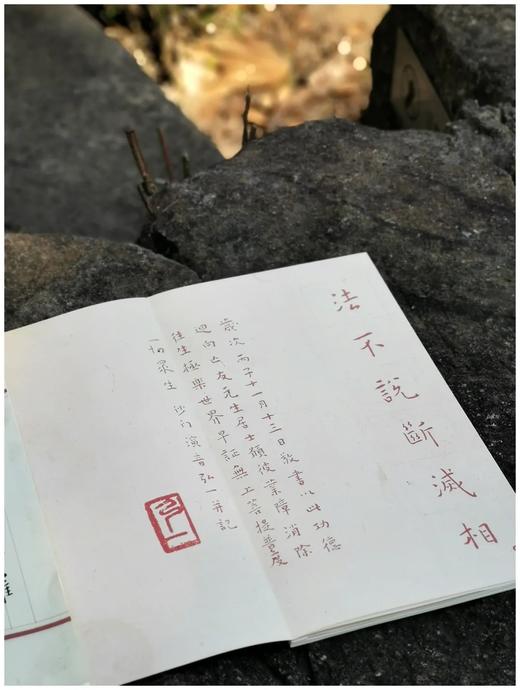 法不說斷滅相。
歲次丙子十一月十三日敬書以此功德
迴向亡友元生居士願彼業障消除
往生極樂世界早証無上菩提普度
一切眾生 沙門演音弘一并記
弘一